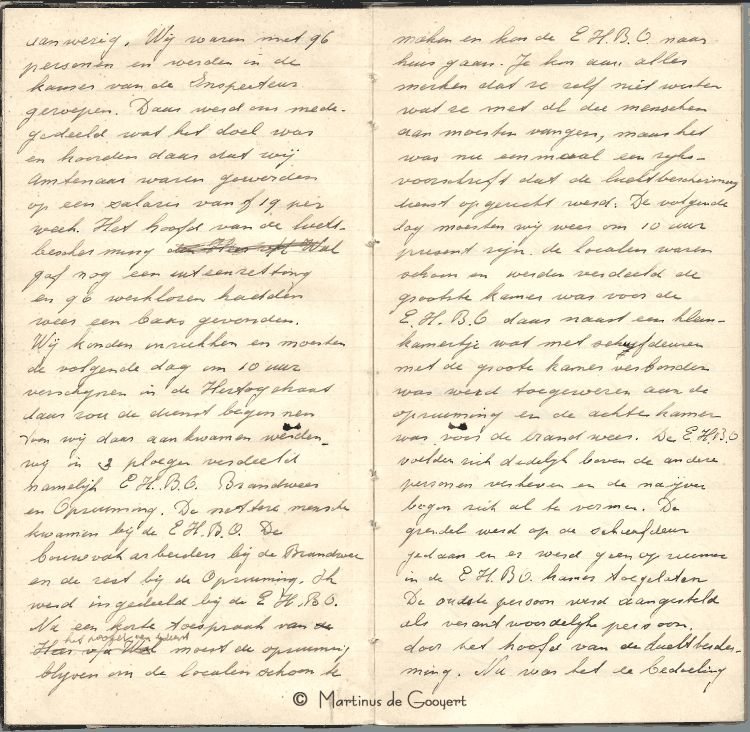 aanwezig. Wij waren met 96
personen en werden in de
kamer van de Inspecteur
geroepen. Daar werd ons mede-
gedeeld wat het doel was
en hoorden daar dat wij
Amtenaar waren geworden
op een salaris van f 19 per
week. Het hoofd van de lucht-
bescherming
gaf nog een uiteenzetting
en 96 werklozen hadden
weer een baas gevonden.
Wij konden inrukken en moesten
de volgende dag om 10 uur
verschynen in de Hertogstraat
daar zou de dienst beginnen
Toen wij daar aankwamen werden
wij in 3 ploegen verdeeld
namelijk E.H.B.O. Brandweer
en Opruiming. De nettere mensen
kwamen bij de E.H.B.O. De
bouwvak arbeiders bij de Brandweer
en de rest bij de Opruiming. Ik
werd ingedeeld bij de E.H.B.O.
Na een korte toespraak van
het hoofd van dienst
moest de opruiming
blyven om de localen schoon te
maken en kon de E.H.B.O. naar
huis gaan. Je kon aan alles
merken dat ze zelf niet wisten
wat ze met al die menschen
aan moesten vangen, maar het
was nu eenmaal een ryks-
voorschrift dat de luchtbescherming
dienst opgericht werd. De volgende
dag moesten wij weer om 10 uur
present zijn. de localen waren
schoon en werden verdeeld de
grootste kamer was voor de
E.H.B.O daar naast een klein
kamertje wat met schuyfdeuren
met de groote kamer verbonden
was werd toegewezen aan de
opruiming en de achter kamer
was voor de brandweer. De E.H.B.O
voelden zich dadelyk boven de andere
personen verheven en de nayver
begon zich al te vormen. De
grendel werd op de schuifdeur
gedaan en er werd geen opruimer
in de E.H.B.O. kamer toegelaten
De oudste persoon werd aangesteld
als verantwoordelyke persoon.
door het hoofd van de luchtbescher-
ming. Nu was het de bedoeling
© Martinus de Gooyert